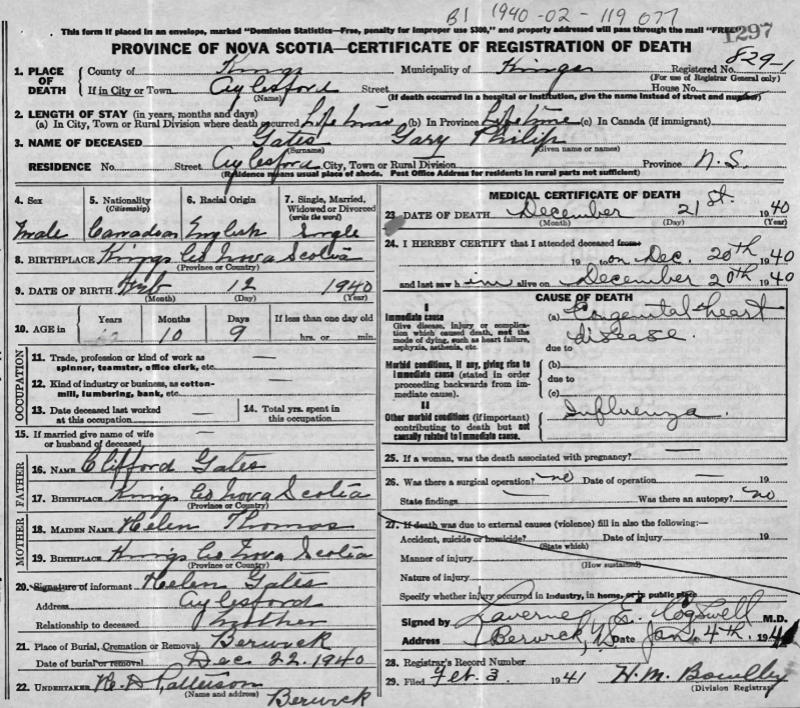 B1 1940-02-119 077
This form if placed in an envelope, marked "Dominion Statistics—Free, penalty for improper use $300," and properly addressed will pass through the mail "FREE"
1297
PROVINCE OF NOVA SCOTIA—CERTIFICATE OF REGISTRATION OF DEATH
829-1
1. PLACE OF DEATH County of Kings Municipality of Kings Registered No.
(For use of Registrar General only)
If in City or Town Aylesford Street House No.
(Name) (If death occurred in a hospital or institution, give the name instead of street and number)
2. LENGTH OF STAY (in years, months and days)
(a) In City, Town or Rural Division where death occurred Life time (b) In Province Life time (c) In Canada (if immigrant)
3. NAME OF DECEASED Gates Gary Philip
(Surname) (Given name or names)
RESIDENCE No. Street Aylesford City, Town or Rural Division Province N.S.
(Residence means usual place of abode. Post Office Address for residents in rural parts not sufficient)
4. Sex 5. Nationality (Citizenship) 6. Racial Origin 7. Single, Married, Widowed or Divorced (write the word)
Male Canadian English Single
8. BIRTHPLACE Kings Co Nova Scotia
(Province or Country)
9. DATE OF BIRTH Feb 12 1940
(Month) (Day) (Year)
10. AGE in Years Months Days If less than one day old
10 9 hrs. or min.
OCCUPATION
11. Trade, profession or kind of work as spinner, teamster, office clerk, etc. —
12. Kind of industry or business, as cotton-mill, lumbering, bank, etc. —
13. Date deceased last worked at this occupation — 14. Total yrs. spent in this occupation
15. If married give name of wife or husband of deceased —
FATHER
16. NAME Clifford Gates
17. BIRTHPLACE Kings Co Nova Scotia
(Province or Country)
MOTHER
18. MAIDEN NAME Helen Thomas
19. BIRTHPLACE Kings Co Nova Scotia
(Province or Country)
20. Signature of informant Helen Gates
Address Aylesford
Relationship to deceased mother
21. Place of Burial, Cremation or Removal Berwick
Date of burial or removal Dec 22. 1940
22. UNDERTAKER Patterson
(Name and address) Berwick
MEDICAL CERTIFICATE OF DEATH
23. DATE OF DEATH December 21st 1940
(Month) (Day) (Year)
24. I HEREBY CERTIFY that I attended deceased from
19 to on Dec. 20th 1940
and last saw h im alive on December 20th 1940
CAUSE OF DEATH
I
Immediate cause
Give disease, injury or complication which caused death, not the mode of dying, such as heart failure, asphyxia, asthenia, etc.
(a) Congenital heart disease.
due to
Morbid conditions, if any, giving rise to immediate cause (stated in order proceeding backwards from immediate cause).
(b)
due to
(c)
II
Other morbid conditions (if important) contributing to death but not causally related to immediate cause.
Influenza
25. If a woman, was the death associated with pregnancy? —
26. Was there a surgical operation? no Date of operation — 19
State findings — Was there an autopsy? no
27. If death was due to external causes (violence) fill in also the following:—
Accident, suicide or homicide? Date of injury 19
(State which)
Manner of injury
(How sustained)
Nature of injury
Specify whether injury occurred in industry, in home, or in public place
Signed by Laverne E. Cogswell M.D.
Address Berwick, N Date Jan. 4th. 1941
28. Registrar's Record Number
29. Filed Feb. 3 1941 H. M.
(Division Registrar)